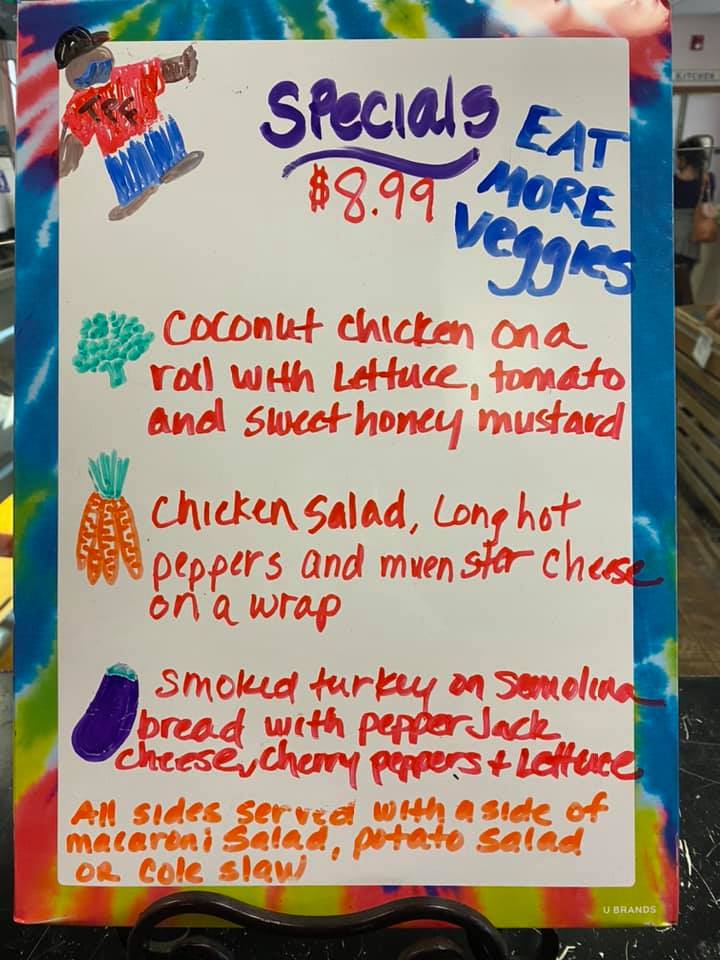 TPF
Specials
$8.99
EAT
MORE
veggies
Coconut chicken on a
roll with Lettuce, tomato
and sweet honey mustard
Chicken salad, Long hot
peppers and muenster cheese
on a wrap
Smoked turkey on Semolina
bread with pepper Jack
cheese, cherry peppers + Lettuce
All sides served with a side of
macaroni salad, potato salad
or cole slaw
U BRANDS
KITCHEN